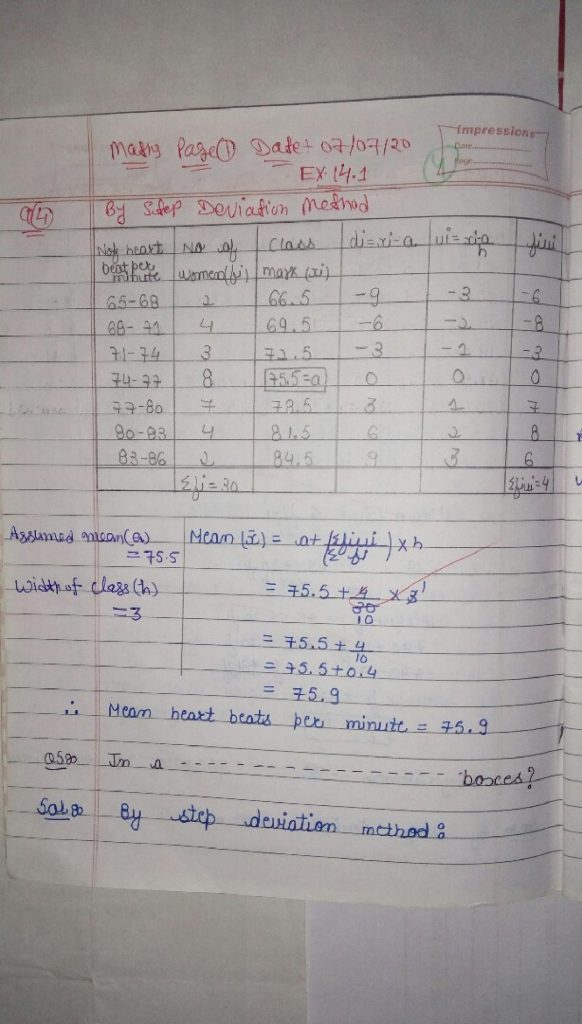 Impressions
Date
Page
4
Maths Page① Date: 07/07/20
EX 14.1
Q(4) By Step Deviation Method
No of heart beat per minute | No of women(fi) | Class mark (xi) | di=xi-a | ui=xi-a/h | fiui
65-68 | 2 | 66.5 | -9 | -3 | -6
68-71 | 4 | 69.5 | -6 | -2 | -8
71-74 | 3 | 72.5 | -3 | -1 | -3
74-77 | 8 | 75.5=a | 0 | 0 | 0
77-80 | 7 | 78.5 | 3 | 1 | 7
80-83 | 4 | 81.5 | 6 | 2 | 8
83-86 | 2 | 84.5 | 9 | 3 | 6
Σfi=30 | Σfiui=4
Assumed mean(a)
=75.5
Width of class(h)
=3
Mean (x̄) = a+(Σfiui/Σfi)×h
= 75.5 + 4/30 × 3
10 1
= 75.5 + 4/10
= 75.5+0.4
= 75.9
∴ Mean heart beats per minute = 75.9
Q5 In a ---------------- boxes?
Sol By step deviation method: